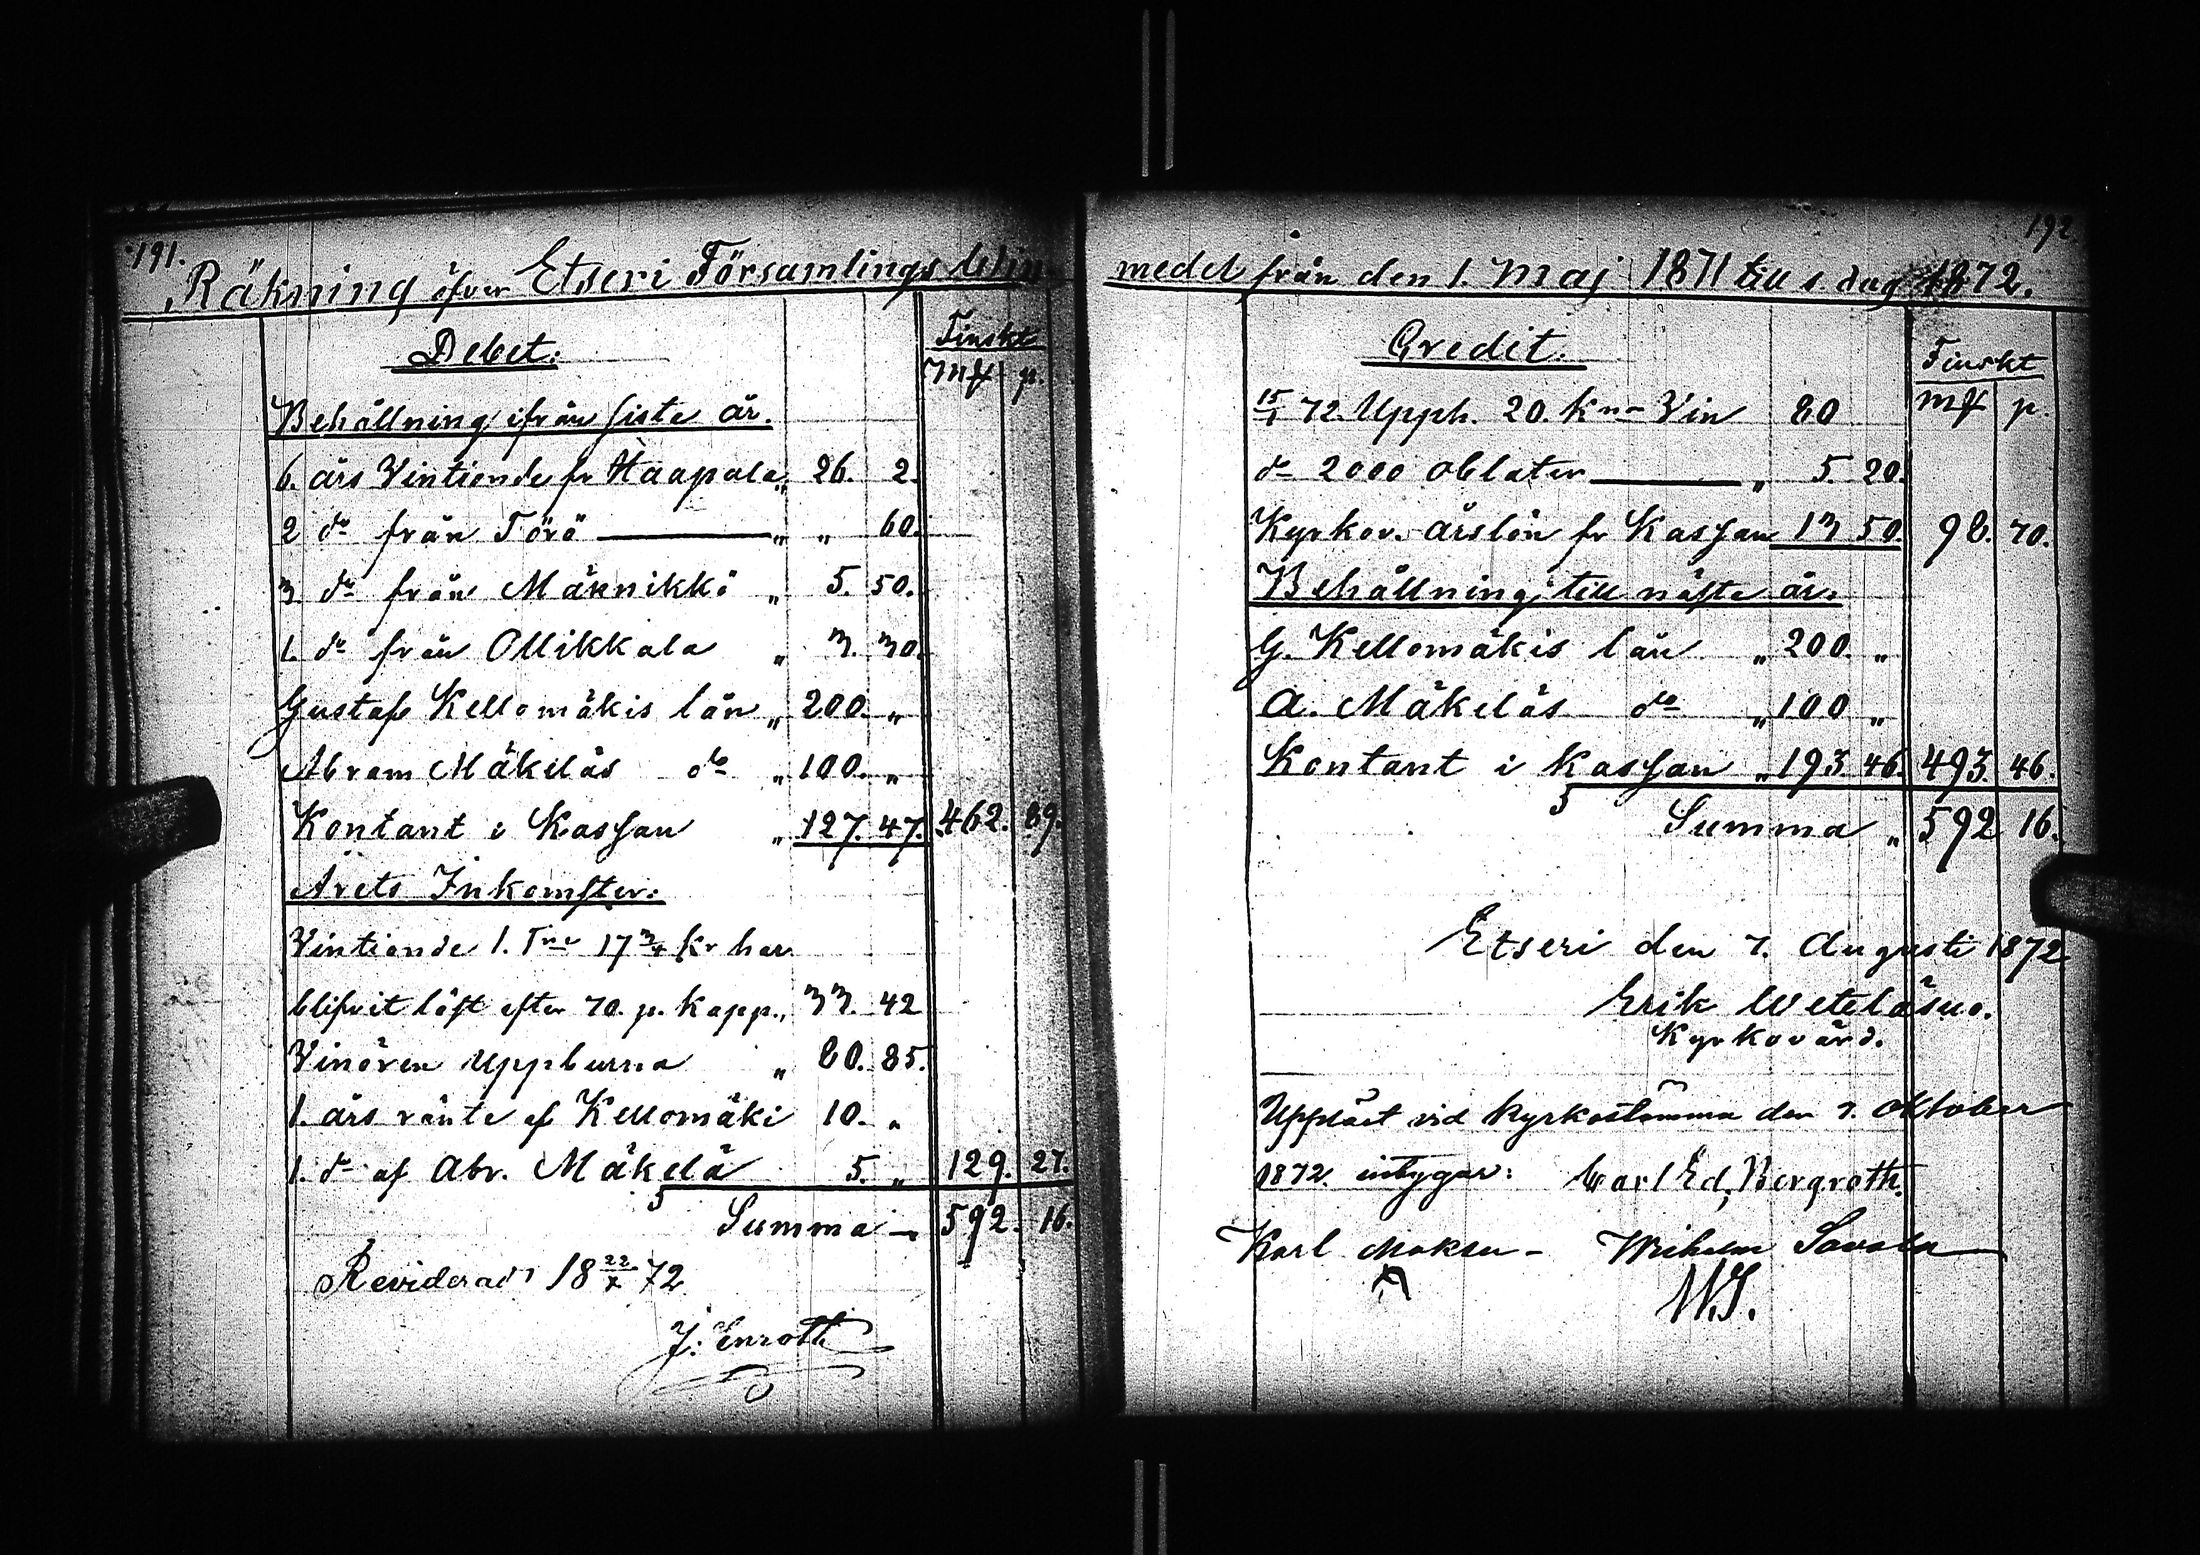 191.
Räkning öfver Etseri Församlings Win-
Debet:
Finskt
Mk p.
Behållning ifrån siste år.
6. års Vintionde fr Haapala „ 26. 2.
2 do från Törö „ „ 60.
3 do från Männikkö „ 5. 50.
1. do från Ollikkala „ 3. 30.
Gustaf Kellomäkis lån „ 200. „
Abram Mäkeläs do „ 100. „
Kontant i Kassan „ 127. 47. 462. 89.
Årets Inkomster:
Vintionde 1. Tne 17 3/4 kr har
blifvit löst efter 70. p. Kapp., 33. 42
Vinören uppburna „ 80. 85.
1. års ränte af Kellomäki 10. „
1. do af Abr. Mäkelä 5. „ 129. 27.
Summa 592. 16.
Reviderad 18 22/X 72
J. Enroth
192.
medel från den 1. Maj 1871 till s. dag 1872.
Credit.
Finskt
mk p.
15/1 72 Upph. 20. Knr Vin 80
do 2000 Oblater „ 5. 20.
Kyrkov. årslön fr Kassan 13 50. 98. 70.
Behållning till näste år.
G. Kellomäkis lån „ 200. „
A. Mäkeläs do „ 100 „
Kontant i Kassan „ 193 46. 493 46.
Summa „ 592 16.
Etseri den 7. Augusti 1872
Erik Weteläsuo.
Kyrkovärd.
Uppläst vid Kyrkostämma den 7. Oktober
1872. intygar: Carl Ed. Bergroth.
Karl Wilhelm Savola
W.S.